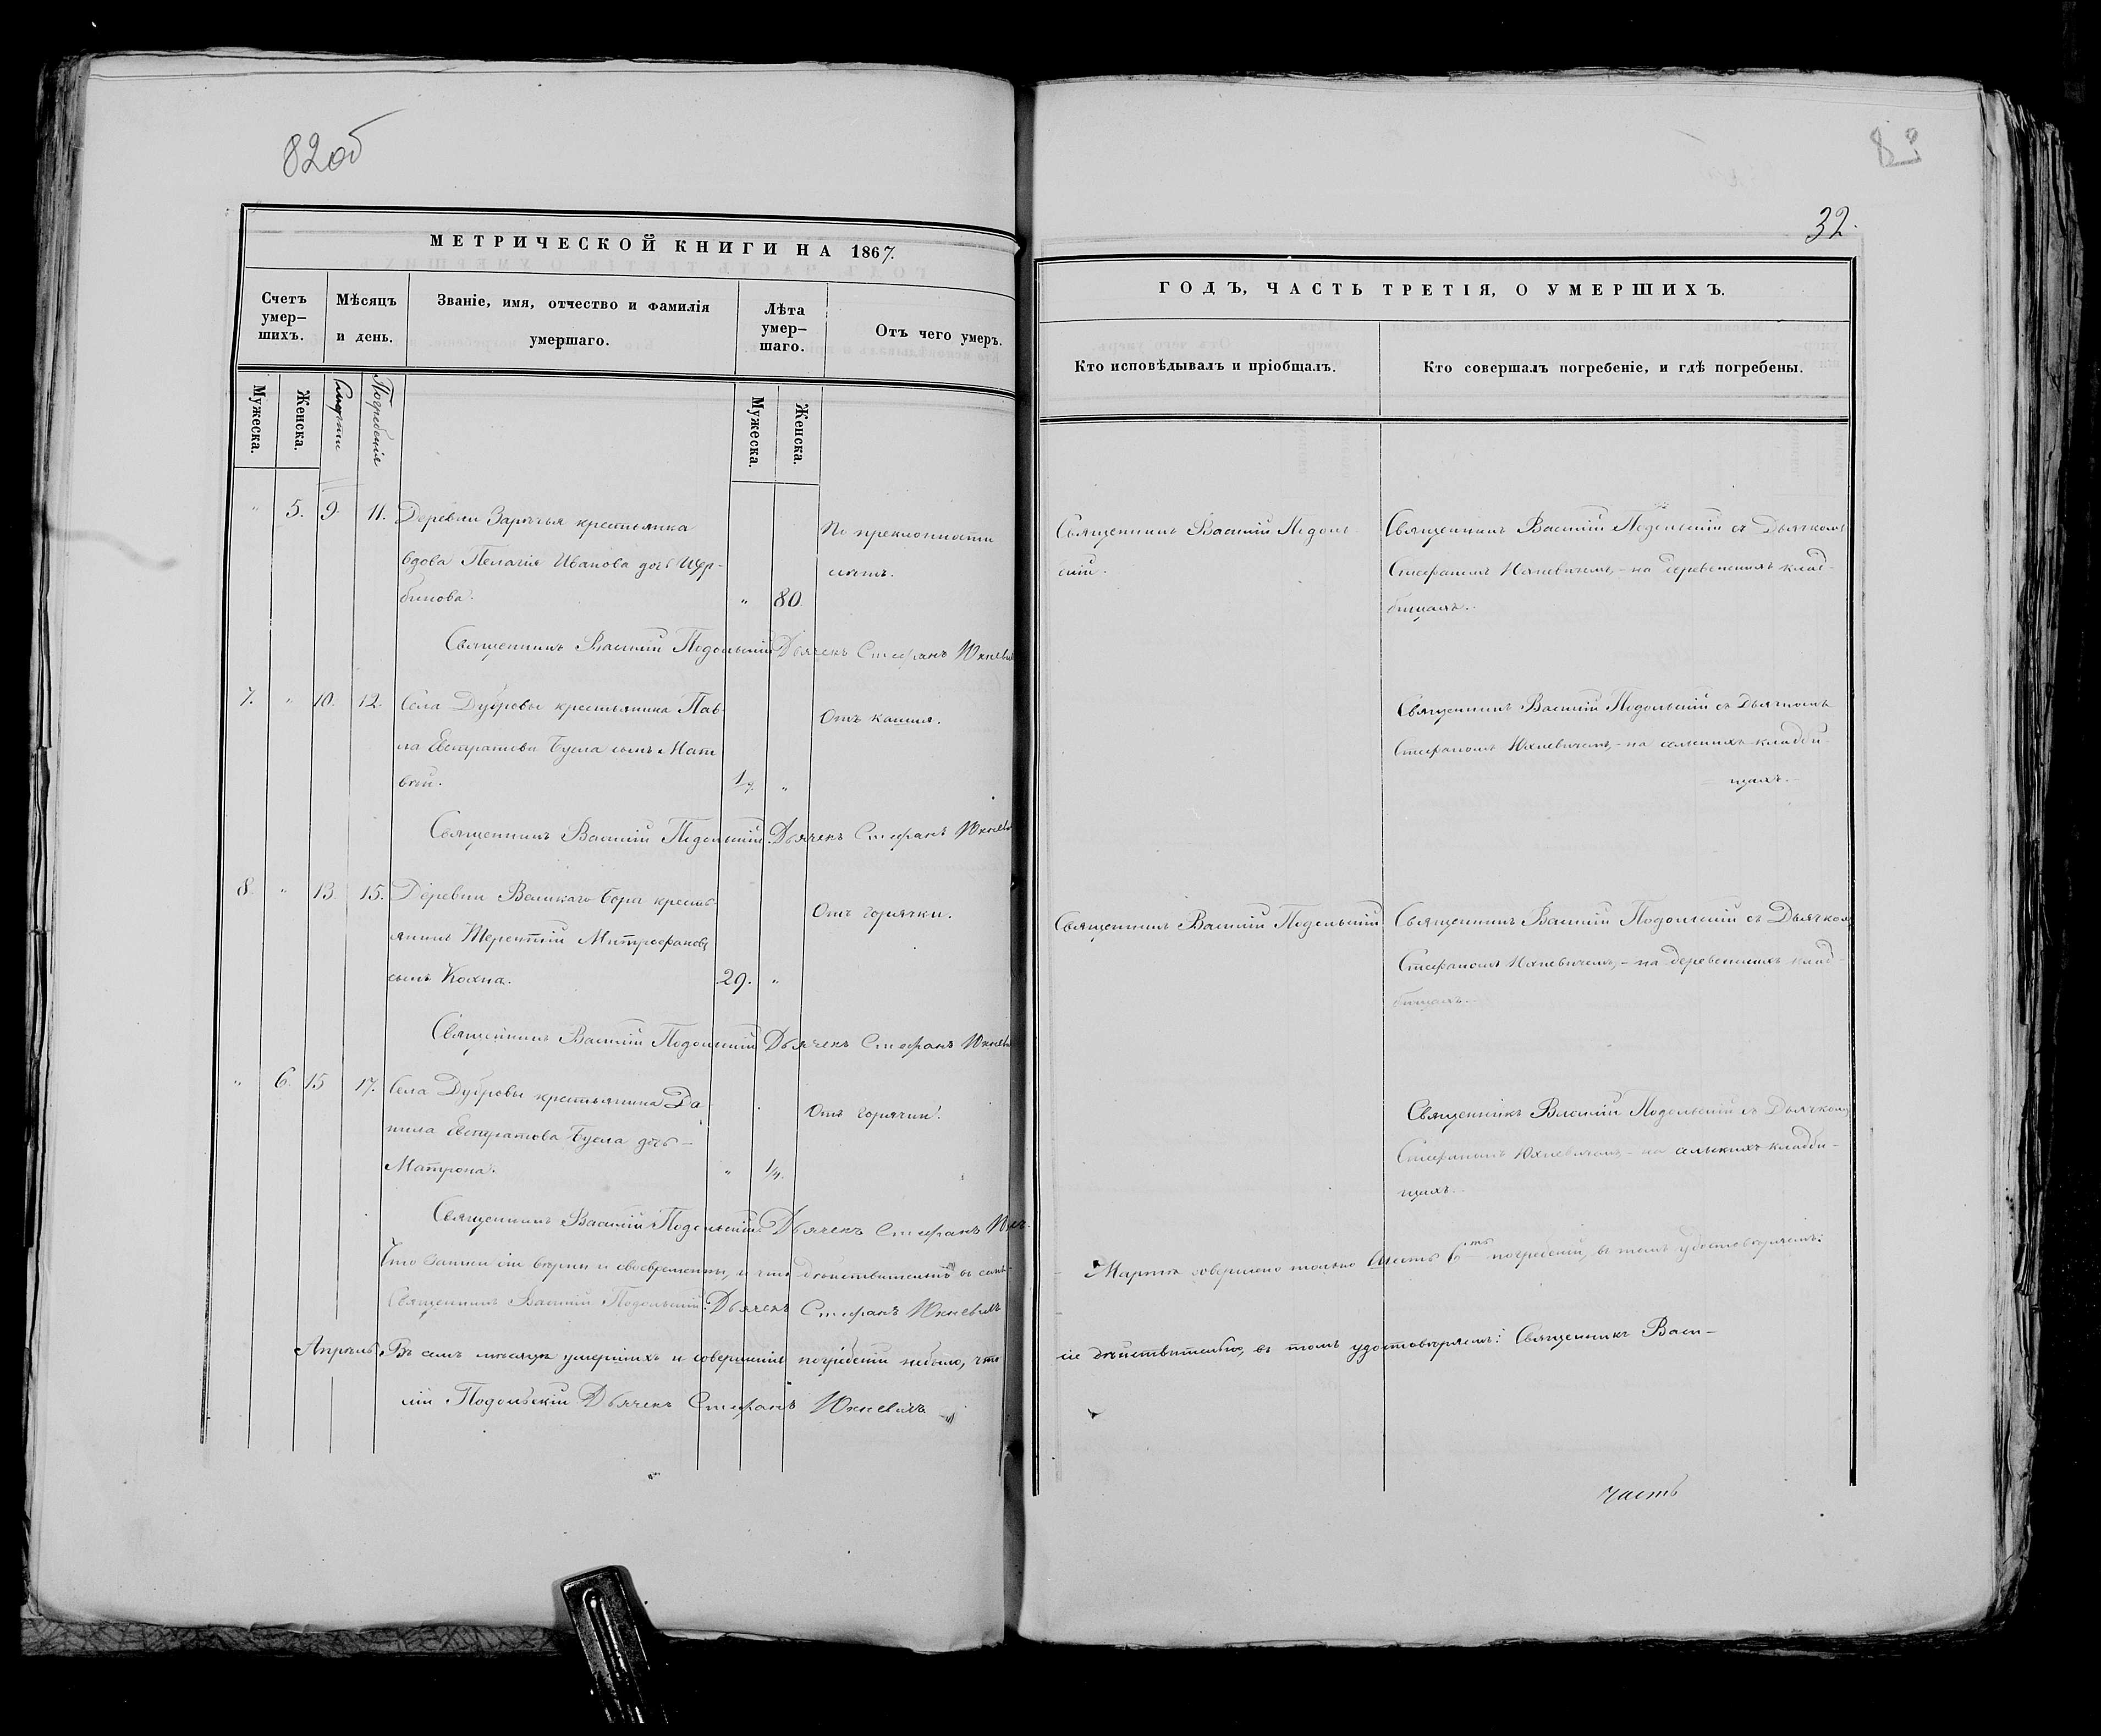 82об
МЕТРИЧЕСКОЙ КНИГИ НА 1867.
Счетъ умер-шихъ.
Мѣсяцъ и день.
Званіе, имя, отчество и фамилія умершаго.
Лѣта умер-шаго.
Отъ чего умеръ.
Мужеска.
Женска.
Смерти
Погребенія
Мужеска.
Женска.
" 5. 9. 11. Деревни Зарѣчья крестьянка
вдова Пелагія Иванова дочь Щер-
бинова. " 80.
По преклонности
лѣтъ.
Священникъ Василій Подольскій Дьячекъ Стефанъ Юхневичъ
7. " 10. 12. Села Дубровы крестьянина Пав-
ла Евстратова Бусла сынъ Мат
вѣй. "
Отъ кашля.
Священникъ Василій Подольскій. Дьячекъ Стефанъ Юхневичъ
8. " 13 15. Деревни Великаго Бора кресть-
янинъ Терентій Митрофановъ
сынъ Кохна. 29. "
Отъ горячки.
Священникъ Василій Подольскій Дьячекъ Стефанъ Юхневичъ
" 6. 15 17. Села Дубровы крестьянина Да
нила Евстратова Бусла дочь-
Матрона. " 1/4.
Отъ горячки.
Священникъ Василій Подольскій. Дьячекъ Стефанъ
Что записи сіи вѣрны и своевременны, и что дѣйствительно въ семъ-
Священникъ Василій Подольскій: Дьячекъ Стефанъ Юхневичъ
Апрѣль. Въ семъ мѣсяцѣ умершихъ и совершенія погребеній небыло, что
лій Подольскій Дьячекъ Стефанъ Юхневичъ
32.
ГОДЪ, ЧАСТЬ ТРЕТІЯ, О УМЕРШИХЪ.
Кто исповѣдывалъ и пріобщалъ.
Кто совершалъ погребеніе, и гдѣ погребены.
Священникъ Василій Подоль
скій.
Священникъ Василій Подольскій съ Дьячкомъ
Стефаномъ Юхневичемъ,- на деревенскихъ клад-
бищахъ.
Священникъ Василій Подольскій съ Дьячкомъ
Стефаномъ Юхневичемъ,- на сельскихъ кладби-
щахъ.-
Священникъ Василій Подольскій
Священникъ Василій Подольскій съ Дьячкомъ
Стефаномъ Юхневичемъ,- на деревенскихъ клад-
бищахъ.
Священникъ Василій Подольскій съ Дьячкомъ
Стефаномъ Юхневичемъ,- на сельскихъ кладби-
щахъ.
Мартѣ совершено только шесть 6ть погребеній, въ томъ удостовѣряемъ:
сіе дѣйствительно, въ томъ удостовѣряемъ: Священникъ Васи-
часть